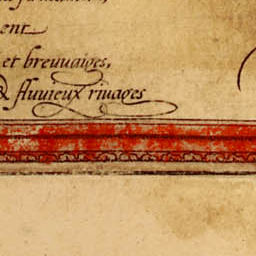 ent
et breuuaiges,
& fluuieux riuages